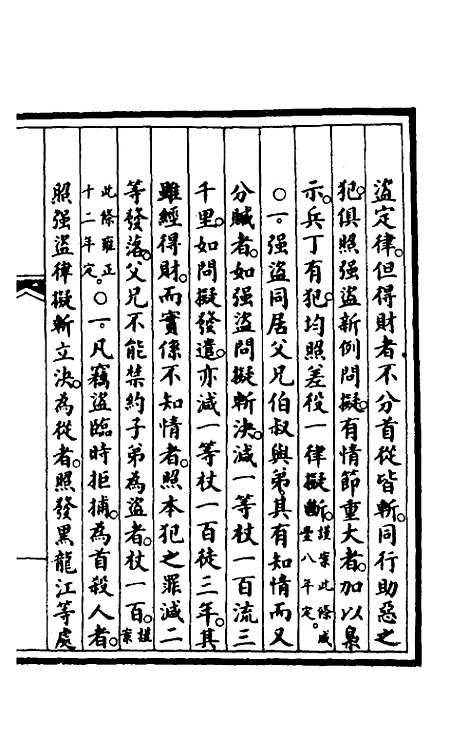 盜定律但得財者不分首從皆斬同行助惡之
犯俱照强盜新例問擬有情節重大者加以梟
示兵丁有犯均照差役一律擬斷謹案此條咸豐八年定
○一强盜同居父兄伯叔與弟其有知情而又
分贓者如强盜問擬斬決減一等杖一百流三
千里如問擬發遣亦減一等杖一百徒三年其
雖經得財而實係不知情者照本犯之罪減二
等發落父兄不能禁約子弟為盜者杖一百謹案
此條雍正十二年定○一凡竊盜臨時拒捕為首殺人者
照强盜律擬斬立決為從者照發黑龍江等處